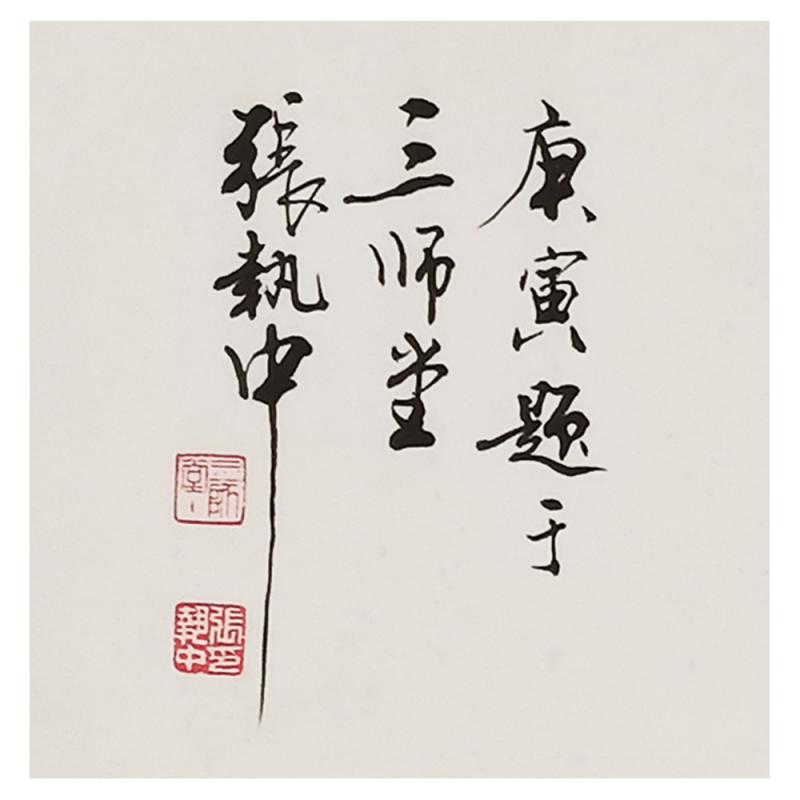 庚寅题于
三师堂
張執中
三師堂
張執中印